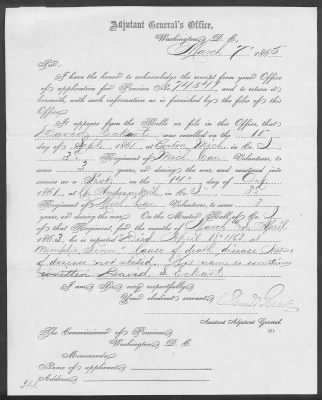 Adjutant General's Office,
Washington, D. C.,
March 7th 1865
Sir:
I have the honor to acknowledge the receipt from your Office
of application for Pension No. 74341, and to return it
herewith, with such information as is furnished by the files of this
Office.
It appears from the Rolls on file in this Office, that
David Eckart was enrolled on the 18
day of Sept., 1861 at Mich. in Co.
3rd Regiment of Mich Cav Volunteers, to
serve 3 years, or during the war, and mustered into
service as a on the day of
1861, at in Co.
Regiment of Mich Cav Volunteers, to serve 3
years, or during the war. On the Muster Roll of Co.
of that Regiment, for the months of March & April
1863, he is reported Died April 18 1863 at
Memphis Tenn. Cause of death disease. Nature
of disease not stated. His name is sometimes
written David S. Eckart
I am Sir, very respectfully,
Your obedient servant,
Assistant Adjutant General.
The Commissioner of Pensions,
Washington, D. C.
Memoranda:
Name of applicant
Address